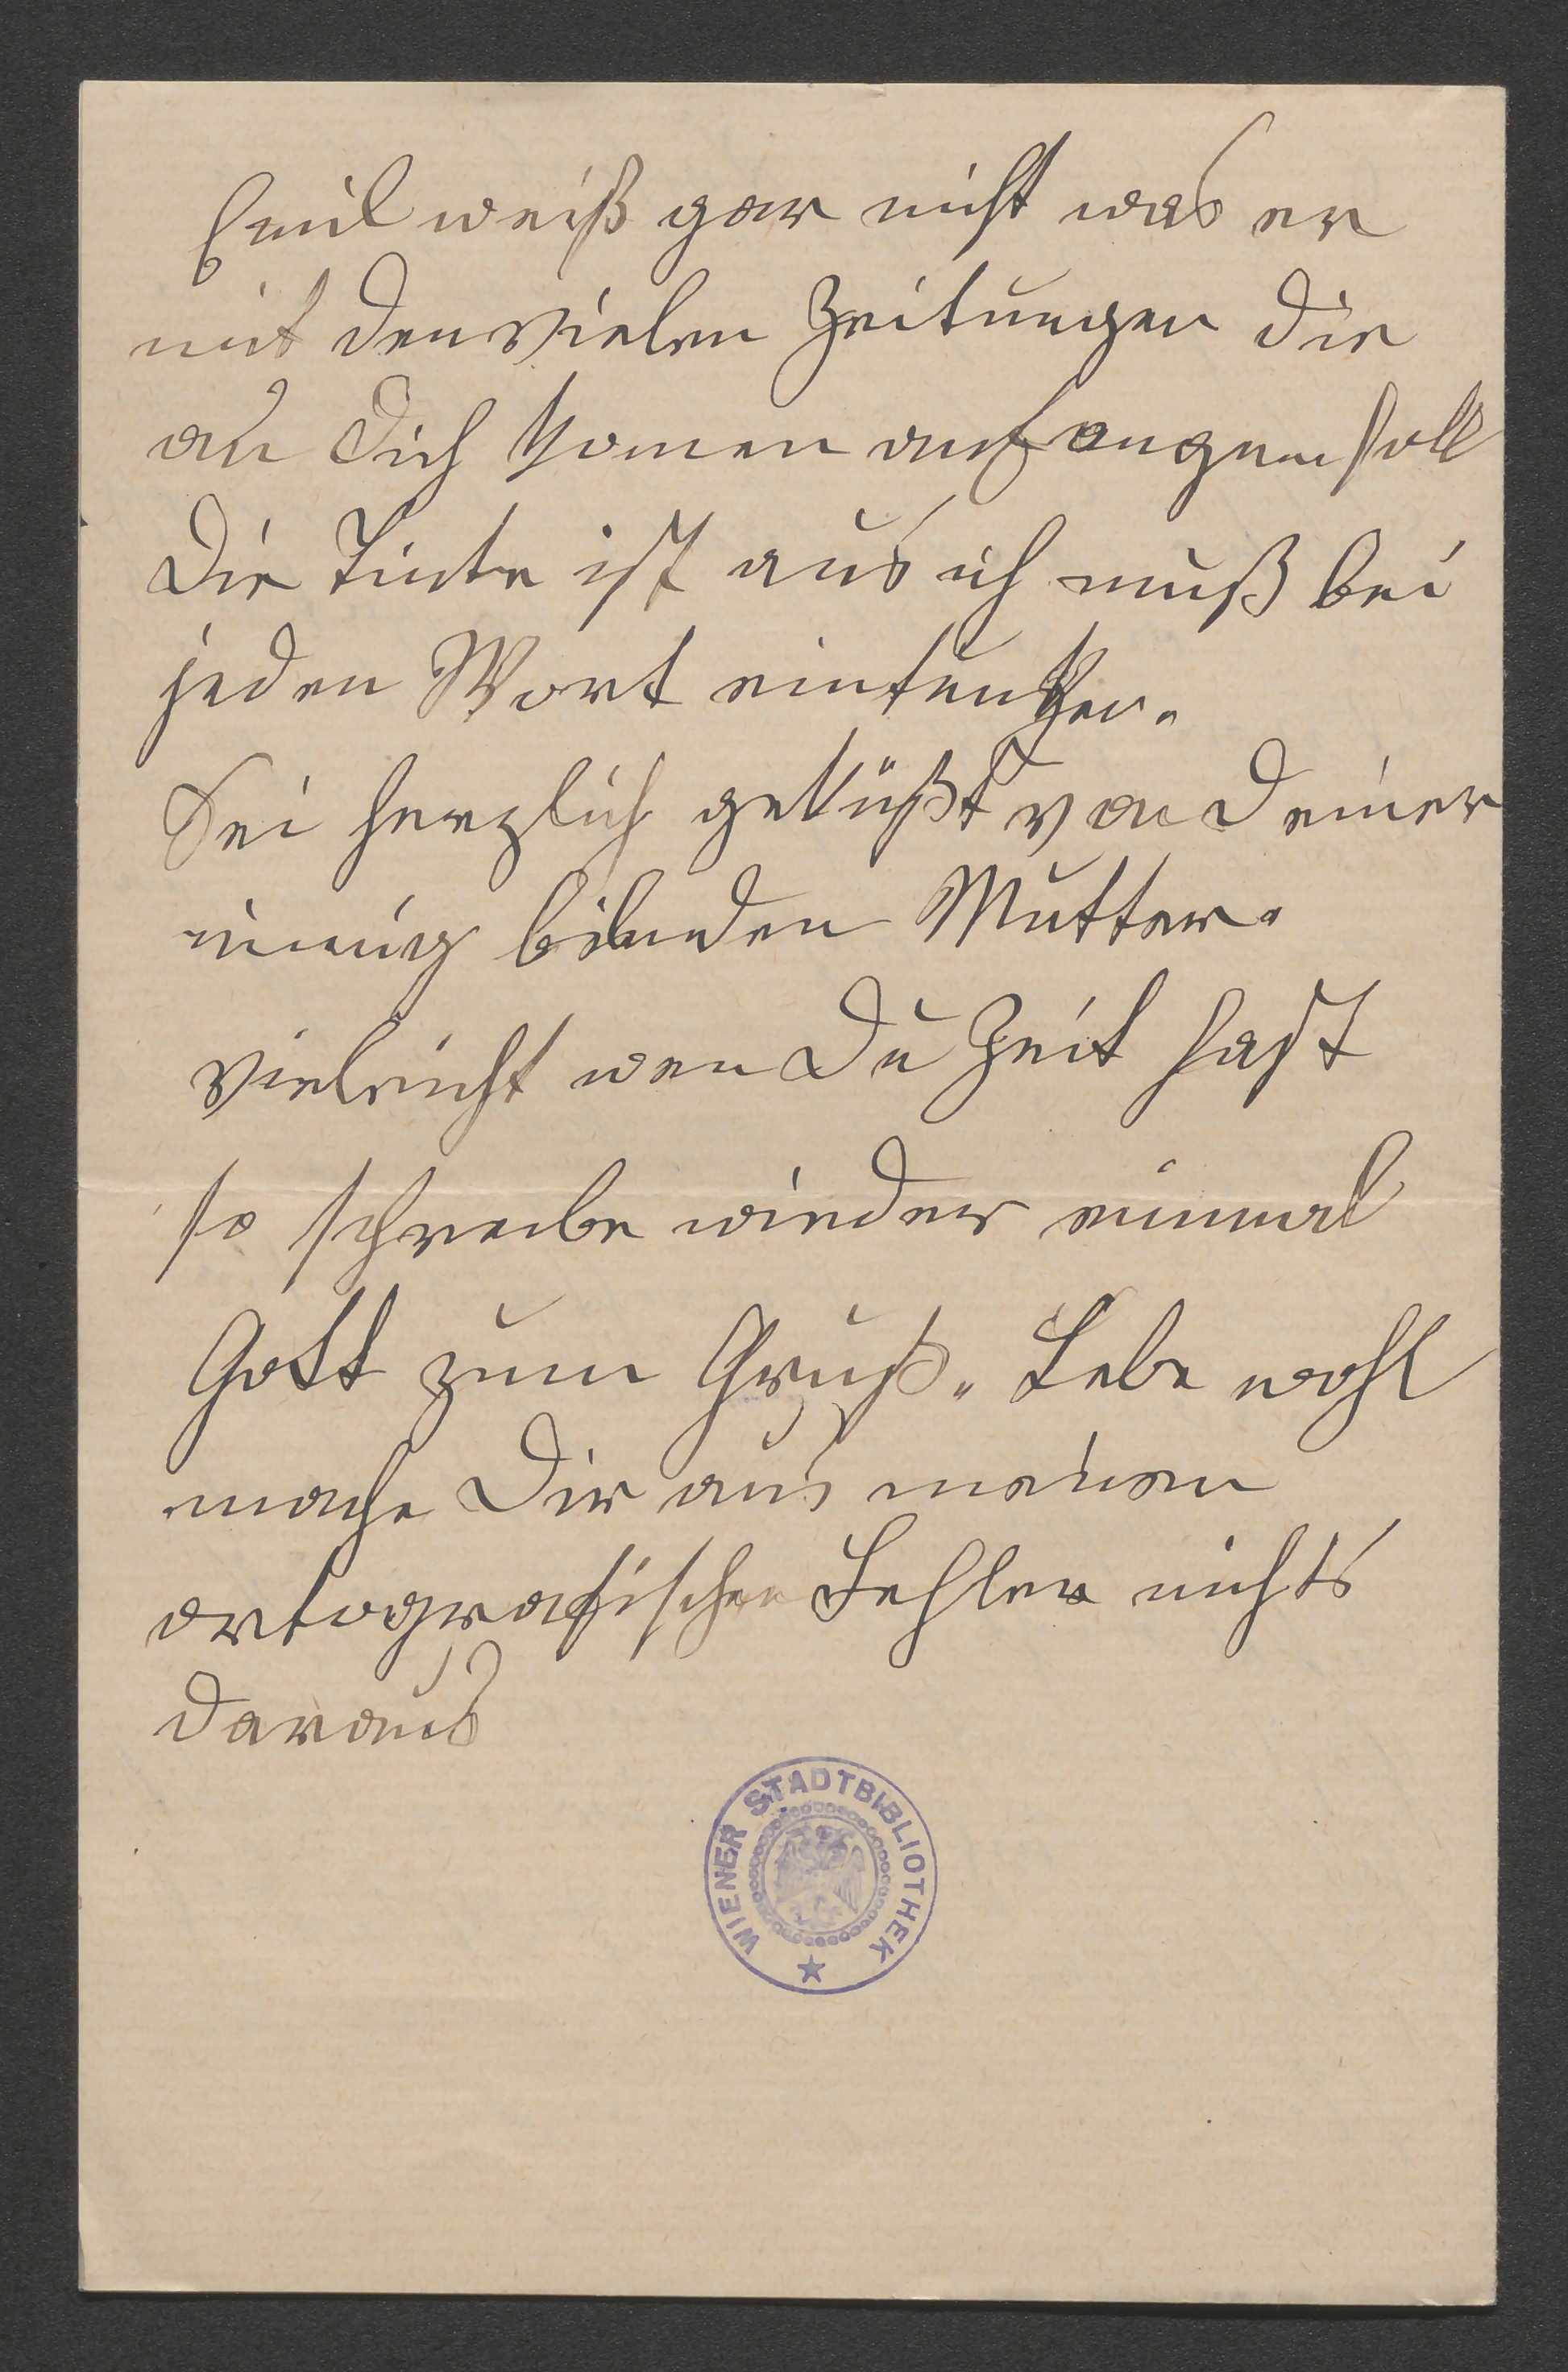 Emil weiß gar nicht was er
mit den vielen Zeitungen die
an Dich komen anfangen soll
Die Tinte ist aus ich muß bei
jeden Wort eintunken.
Sei herzlich geküßt von Deiner
innig liebenden Mutter.
Vieleicht wen Du Zeit hast
so schreibe wieder einmal
Gott zum Gruß. Lebe wohl
mache Dir aus meinen
ortografischen Fehler nichts
daraus
WIENER STADTBIBLIOTHEK